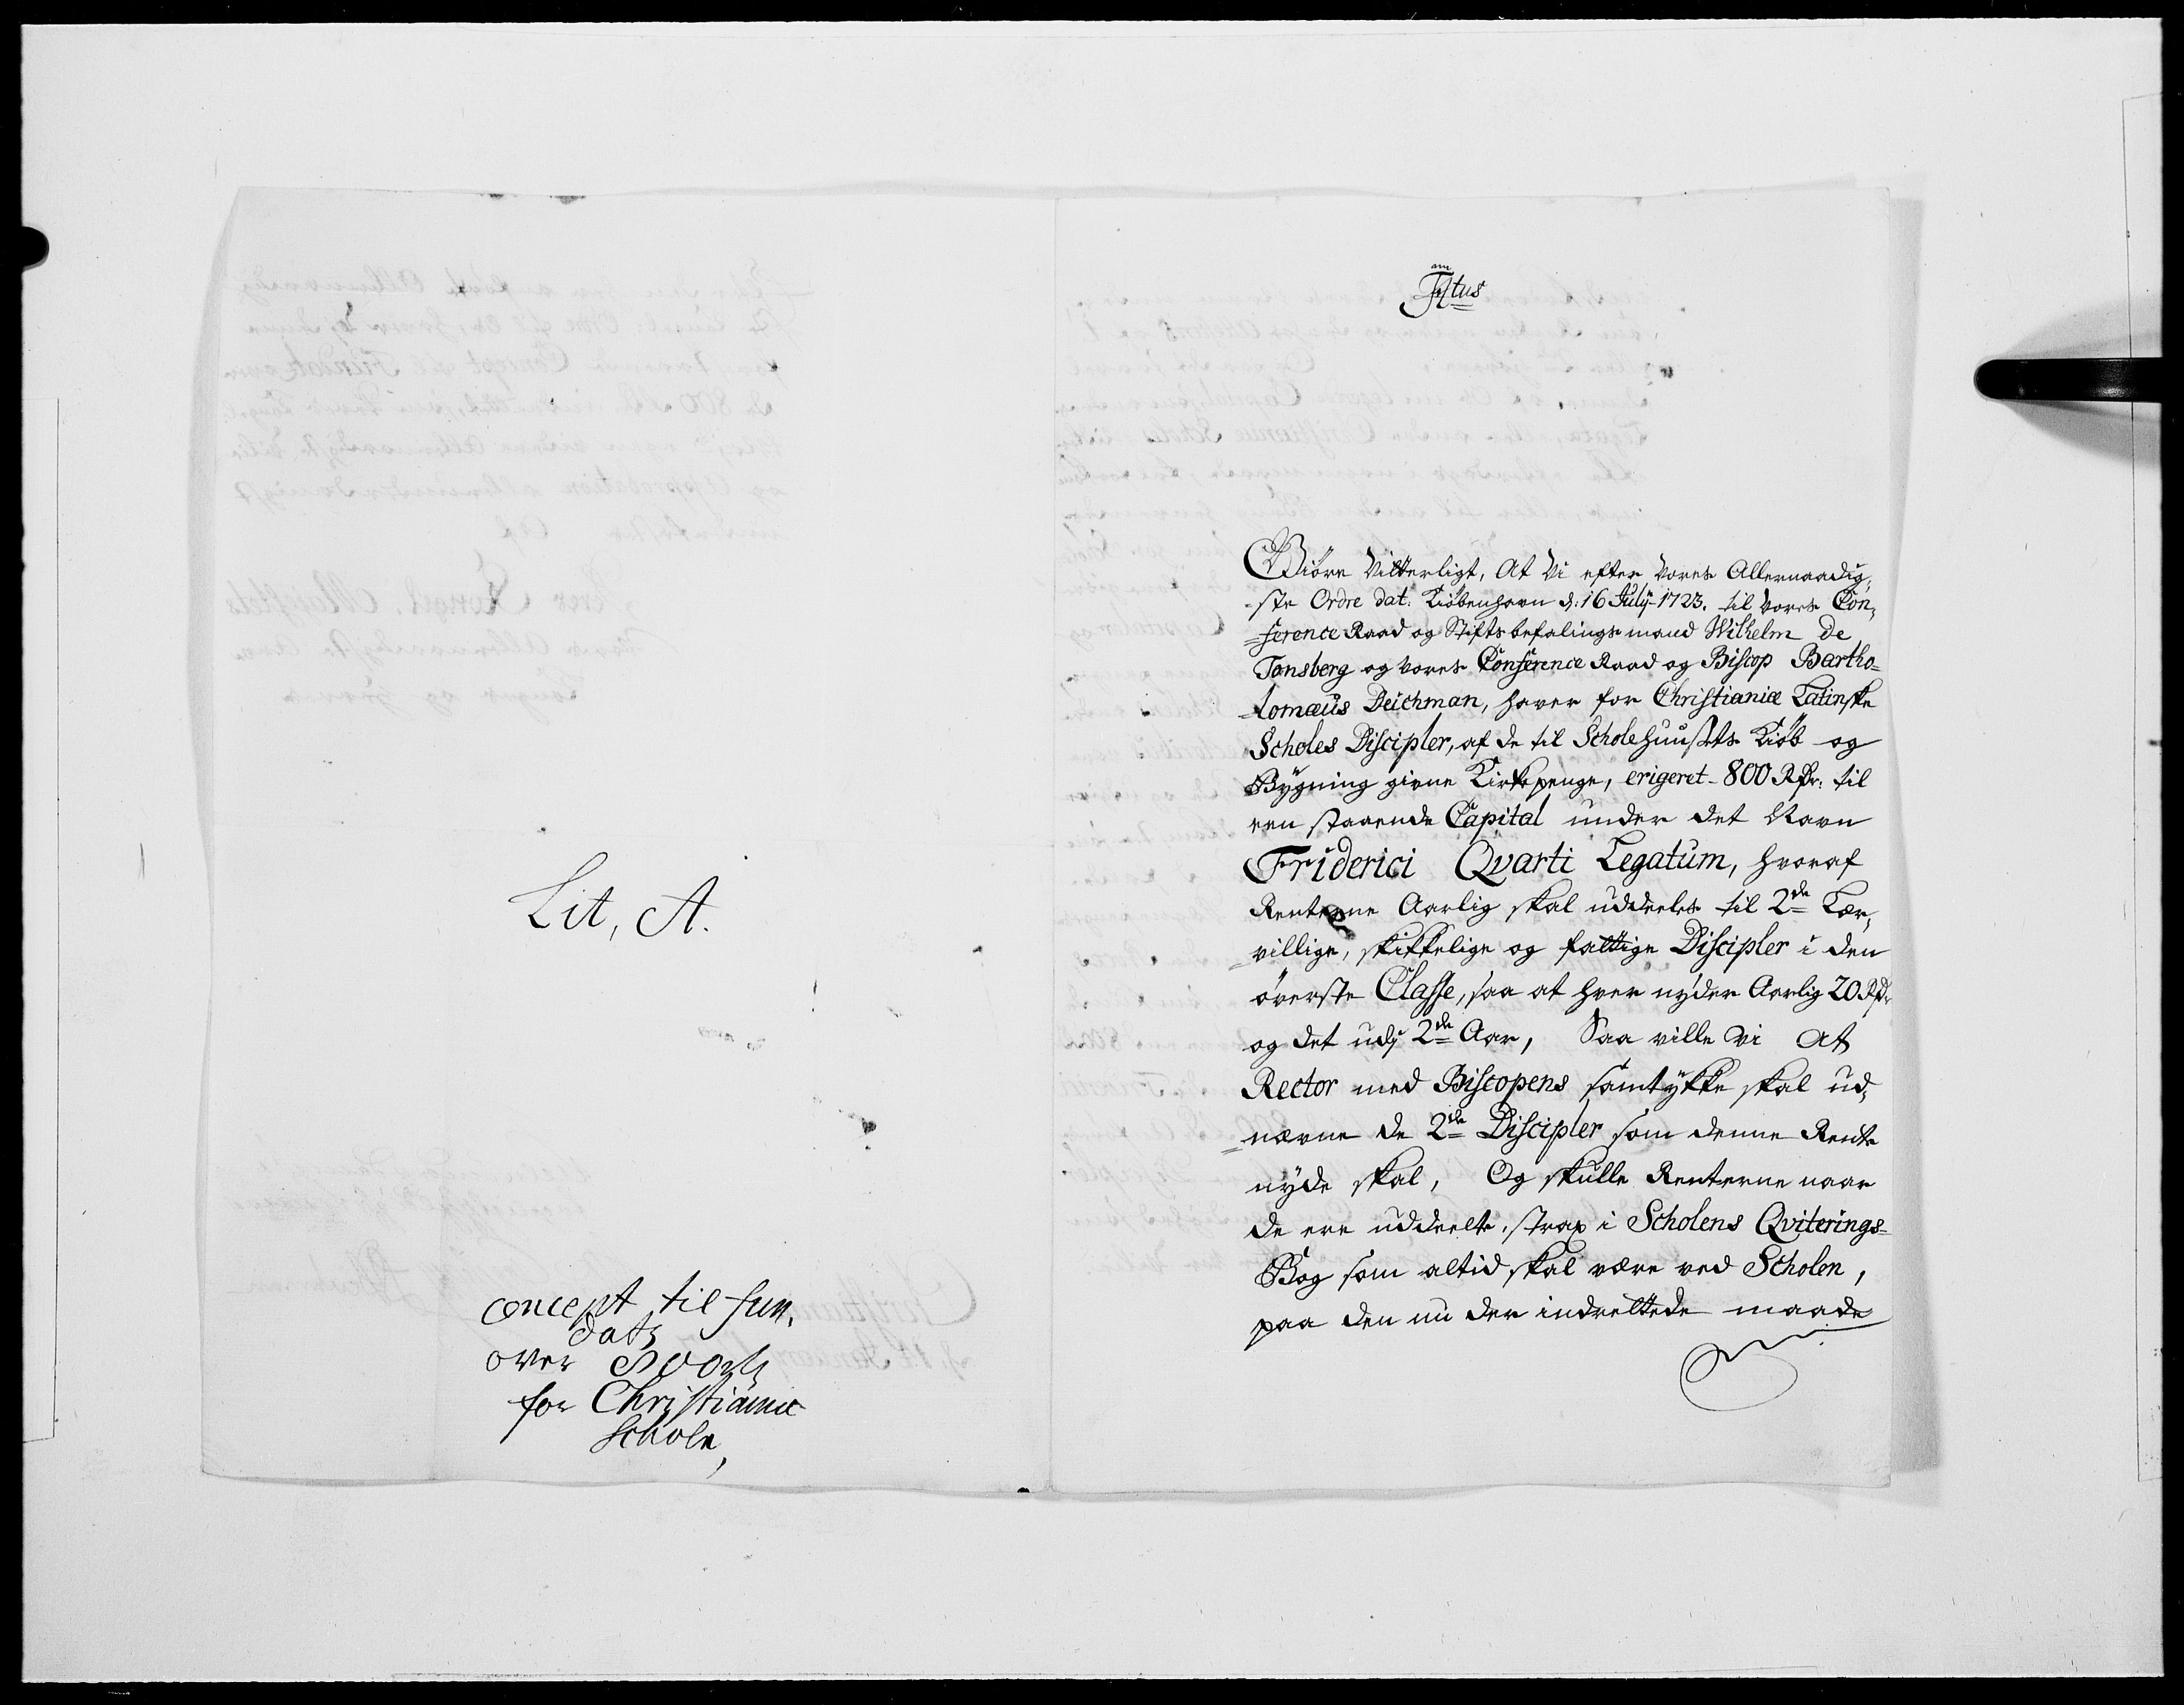 Lit, A.
concept til fun,
dats
over 800 rdr
for Christianiæ
Schole,
Titus
Giöre Vitterligt, At Vi efter Vores Allernaadig,
ste Ordre dat. Kiöbenhavn d: 16 July 1723. til Vores Con,
ference Raad og Stiftsbefalingsmand Wilhelm de
Tonsberg og Vores Conference Raad og Biscop Bartho=
lomæus Deichman, haver for Christianiæ Latinske
Scholes Discipler, af de til Scholehuusets Kiöb og
Bygning givne Kirkepenge, erigeret 800 Rdr: til
een staaende Capital under det Navn
Friderici Qvarti Legatum, hvoraf
Renterne Aarlig skal uddeeles til 2de Lær,
villige, skikkelige og fattige Discipler i den
överste Classe, saa at hver nyder Aarlig 20 Rdr
og det udj 2de Aar, Saa ville Vi At
Rector med Biscopens samtykke skal ud,
nævne de 2de Discipler som denne Rente
nyde skal, Og skulle Renterne naar
de ere uddeelte, strax i Scholens Qviterings-
Bog som altid skal være ved Scholen,
paa den nu der indrettede maade